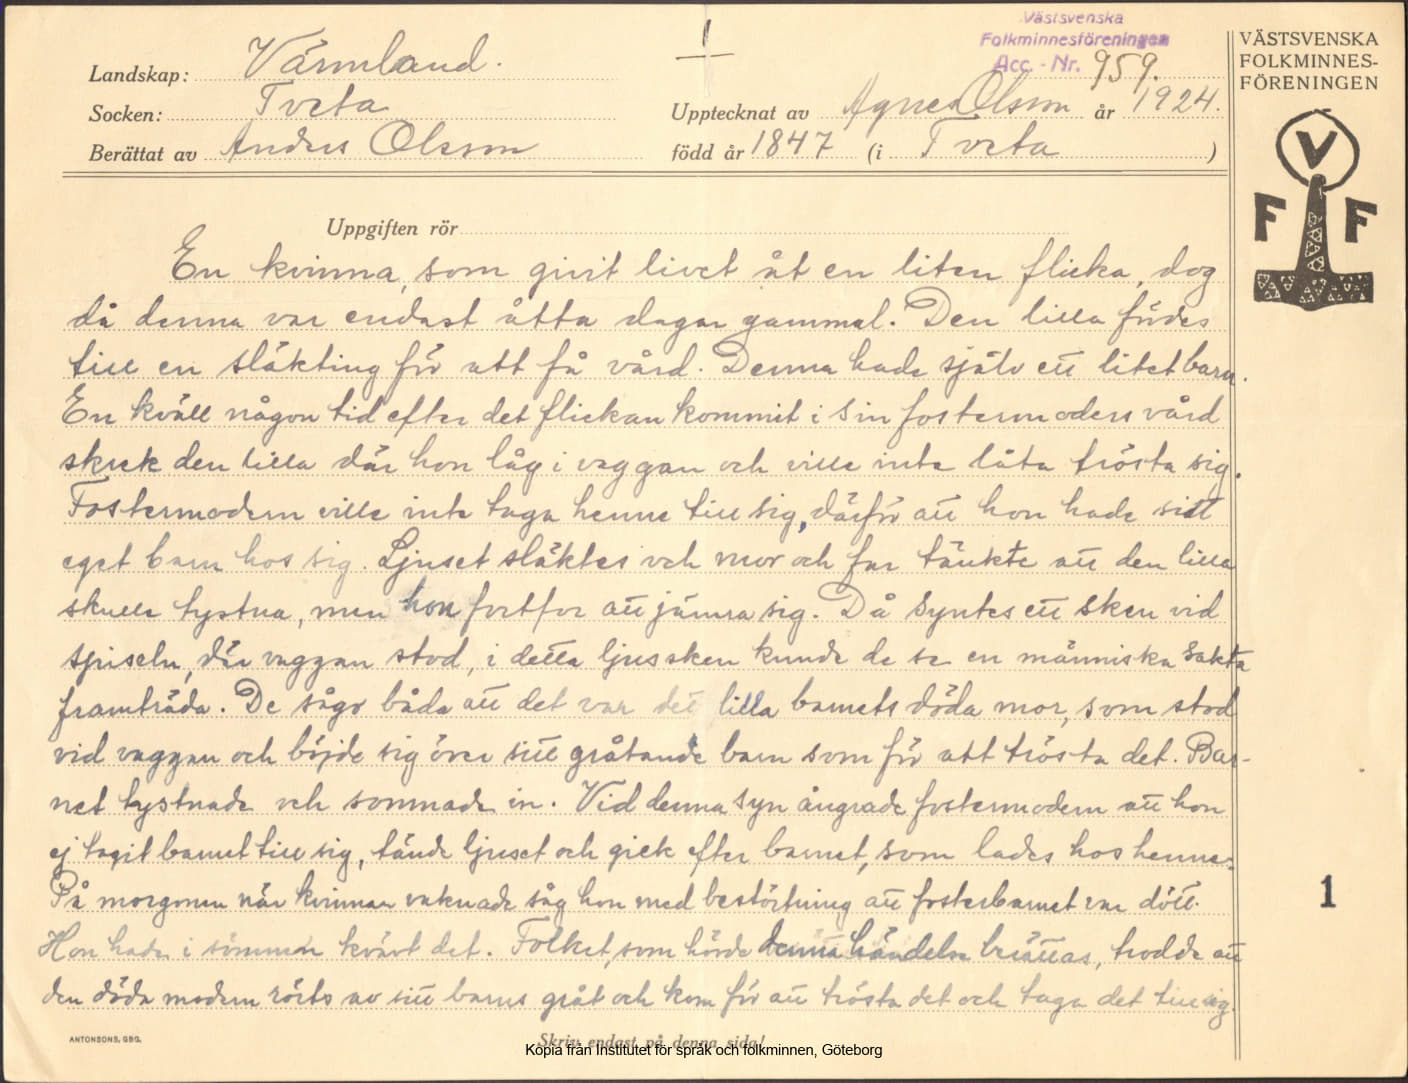 Västsvenska
Folkminnesföreningen
Acc.-Nr. 959.
Landskap: Värmland.
Socken: Tveta
Upptecknat av Agnes Olsson år 1924.
Berättat av Anders Olsson född år 1847 (i Tveta)
VÄSTSVENSKA
FOLKMINNES-
FÖRENINGEN
V
F F
Uppgiften rör
En kvinna, som givit livet åt en liten flicka, dog
då denna var endast åtta dagar gammal. Den lilla fördes
till en släkting för att få vård. Denna hade själv ett litet barn.
En kväll någon tid efter det flickan kommit i sin fostermoders vård
skrek den lilla där hon låg i vaggan och ville inte låta trösta sig.
Fostermodern ville inte taga henne till sig, därför att hon hade sitt
eget barn hos sig. Ljuset släktes och mor och far tänkte att den lilla
skulle tystna, men hon fortfor att jämra sig. Då syntes ett sken vid
spiseln, där vaggan stod, i detta ljussken kunde de se en människa sakta
framträda. De sågo båda att det var det lilla barnets döda mor, som stod
vid vaggan och böjde sig över sitt gråtande barn som för att trösta det. Bar-
net tystnade och somnade in. Vid denna syn ångrade fostermodern att hon
ej tagit barnet till sig, tände ljuset och gick efter barnet, som lades hos henne.
På morgonen när kvinnan vaknade såg hon med bestörtning att fosterbarnet var dött.
Hon hade i sömmen kvävt det. Folket, som hörde denna händelse berättas, trodde att
den döda modern rörts av sitt barns gråt och kom för att trösta det och taga det till sig.
1
ANTONSONS, GBG.
Skriv endast på denna sida!
Kopia från Institutet för språk och folkminnen, Göteborg